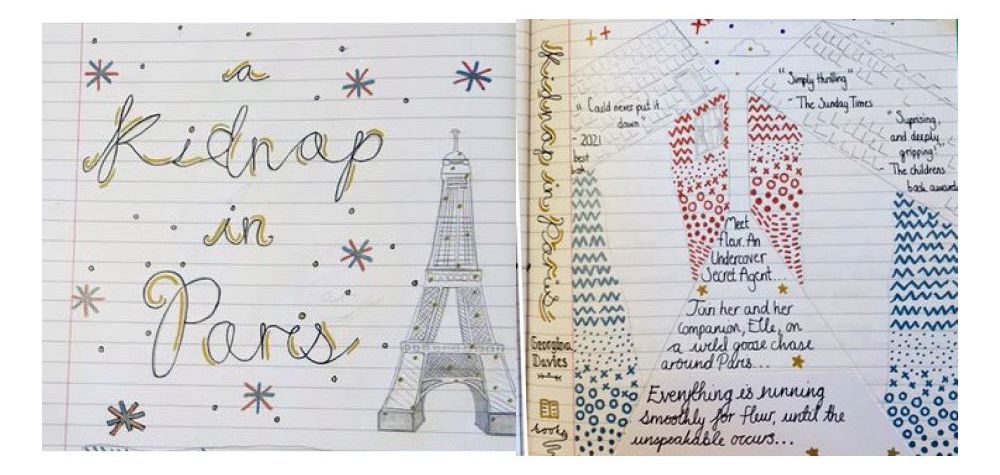 a
Kidnap
in
Paris
Kidnap in Paris
Georgina
Davies
books
"Could never put it
down"
- 2021
best
"Simply thrilling"
- The Sunday Times
"Suprising,
and deeply
gripping"
The childrens
book awards
Meet
fleur. An
Undercover
Secret Agent...
Join her and her
companion, Elle, on
a wild goose chase
around Paris...
Everything is running
smoothly for fleur, until the
unspeakable occurs...